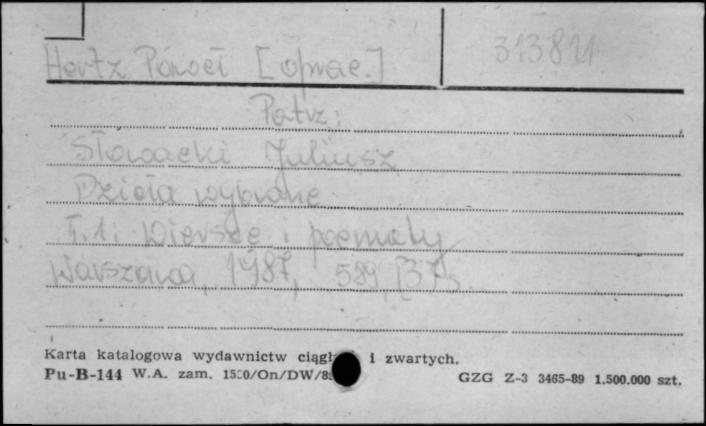 Hertz Paweł [oprac.] 313811
Patrz:
Słowacki Juliusz
Dzieła wybrane
T.1: Wiersze i poematy
Warszawa, 1987, 589, [3] s.
Karta katalogowa wydawnictw i zwartych.
Pu-B-144 W.A. zam. GZG Z-3 3465-89 1.500.000 szt.